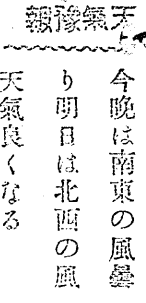 天氣豫報
今晩は南東の風曇
り明日は北西の風
天氣良くなる